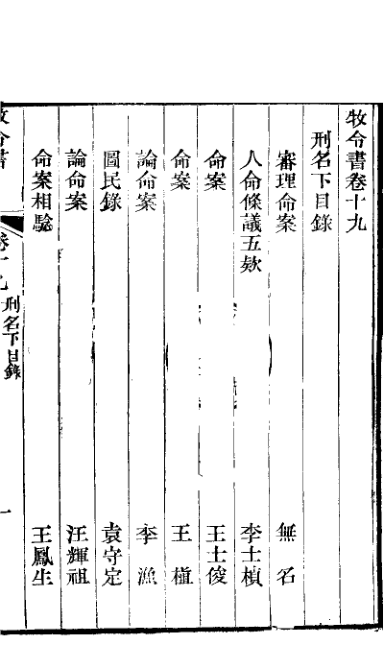 牧令書卷十九
刑名下目錄
審理命案 無名
人命條議五欵 李士楨
命案 王士俊
命案 王植
論命案 李漁
圖民錄 袁守定
論命案 汪輝祖
命案相驗 王鳳生
牧令書 卷十九 刑名下目錄 一